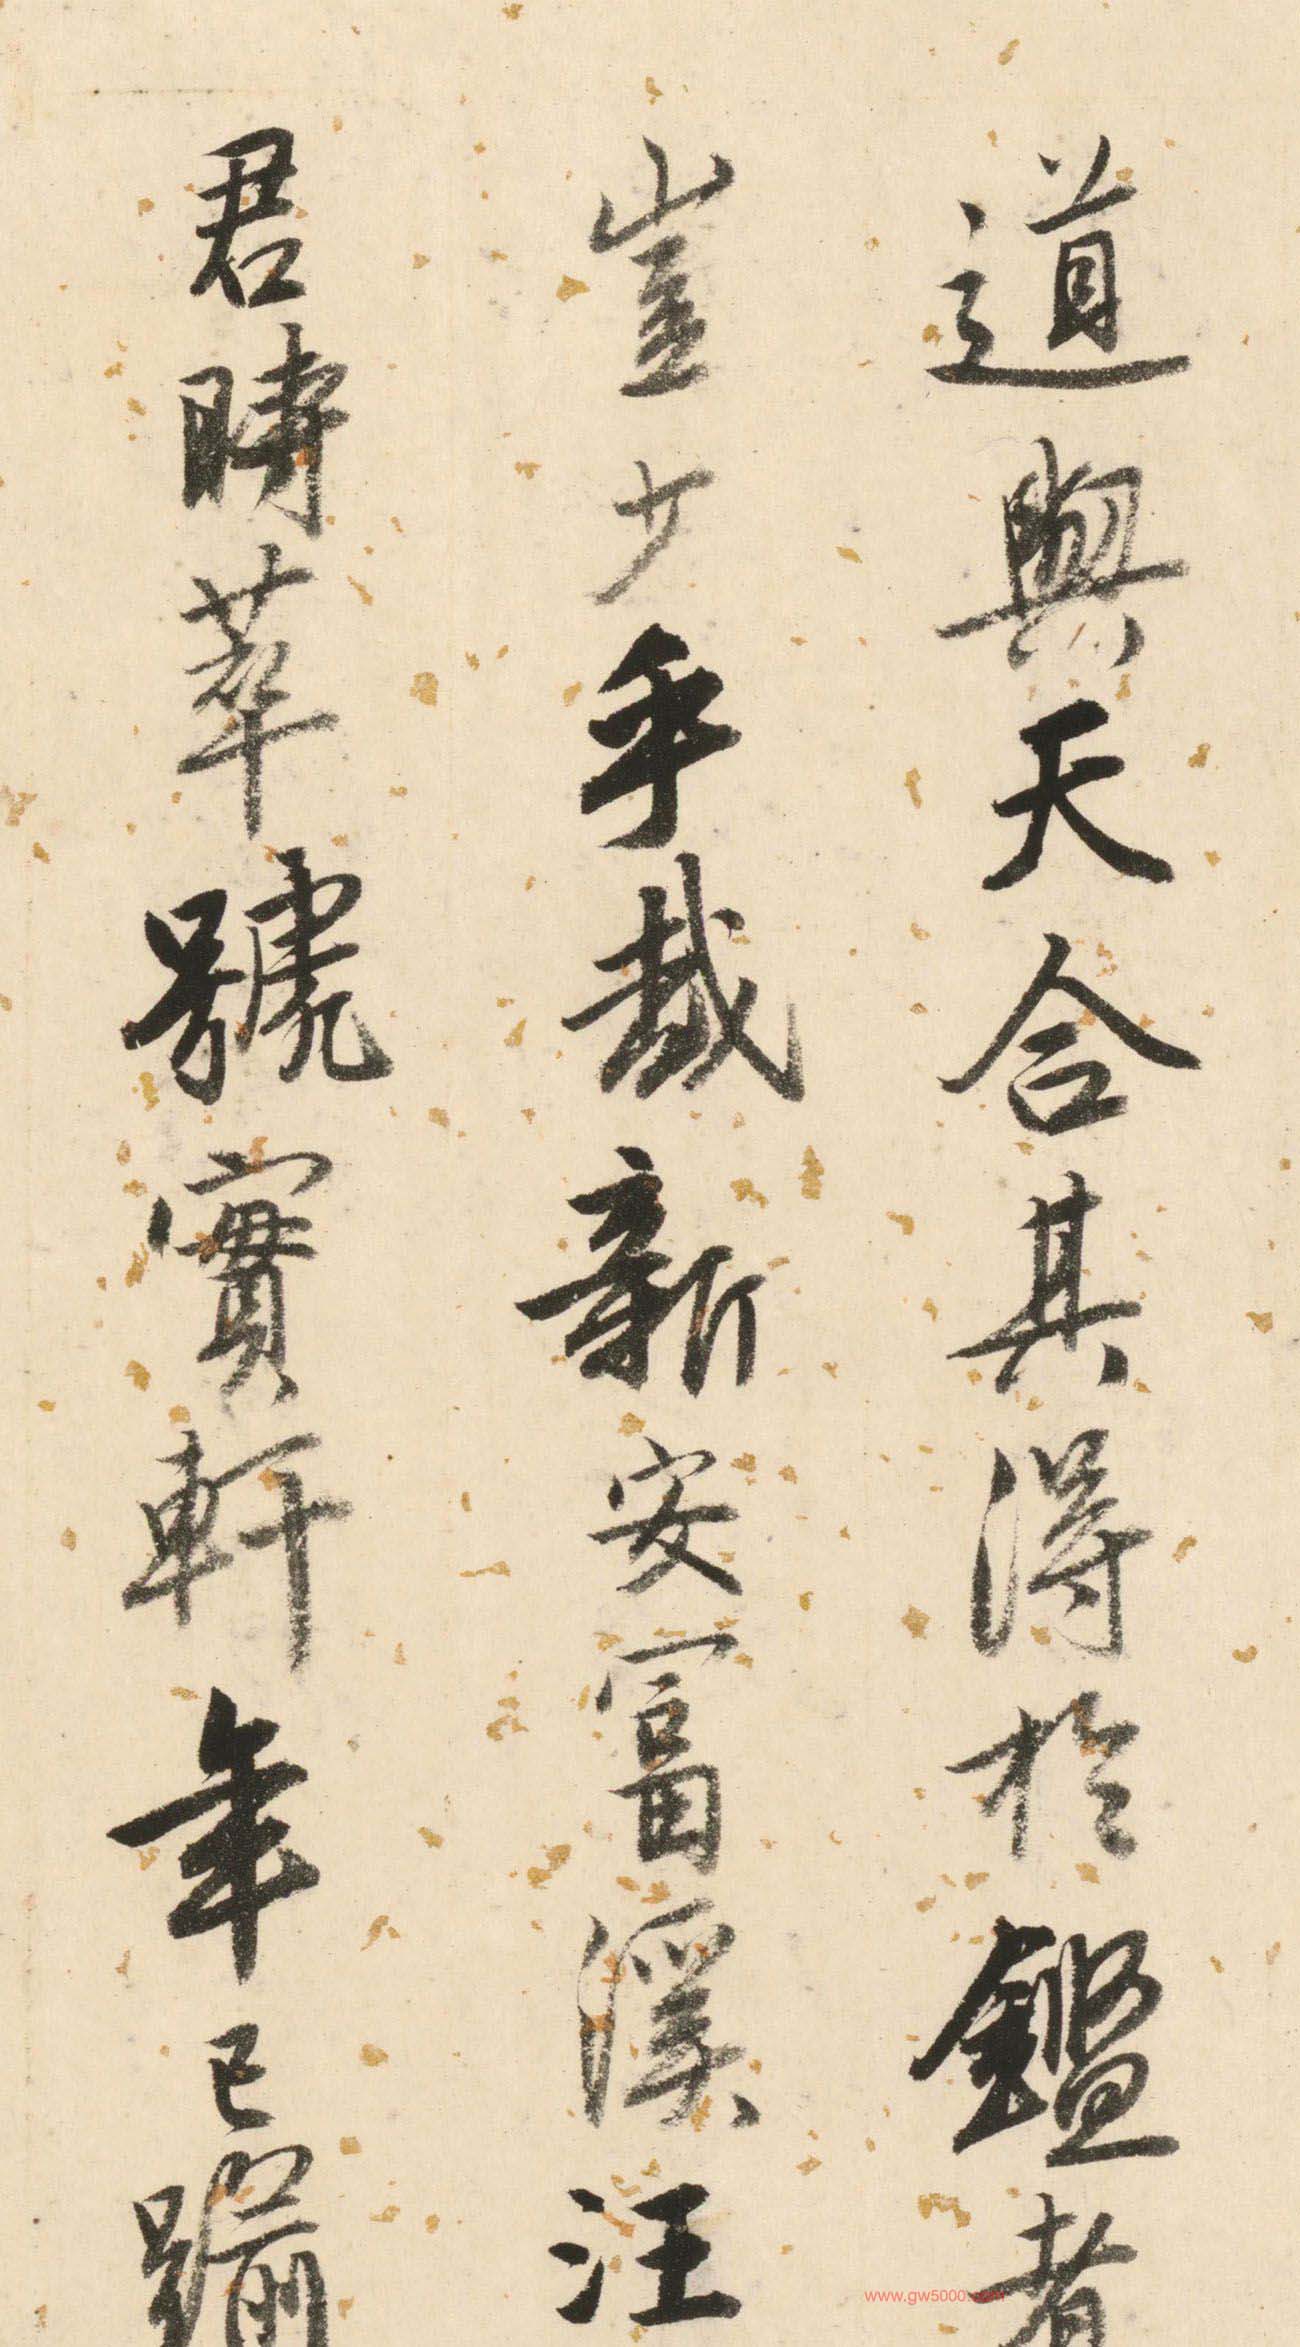 道與天合其得於鑑者
豈少乎哉新安富溪汪
君萃號實軒年已踰
www.gw5000.com